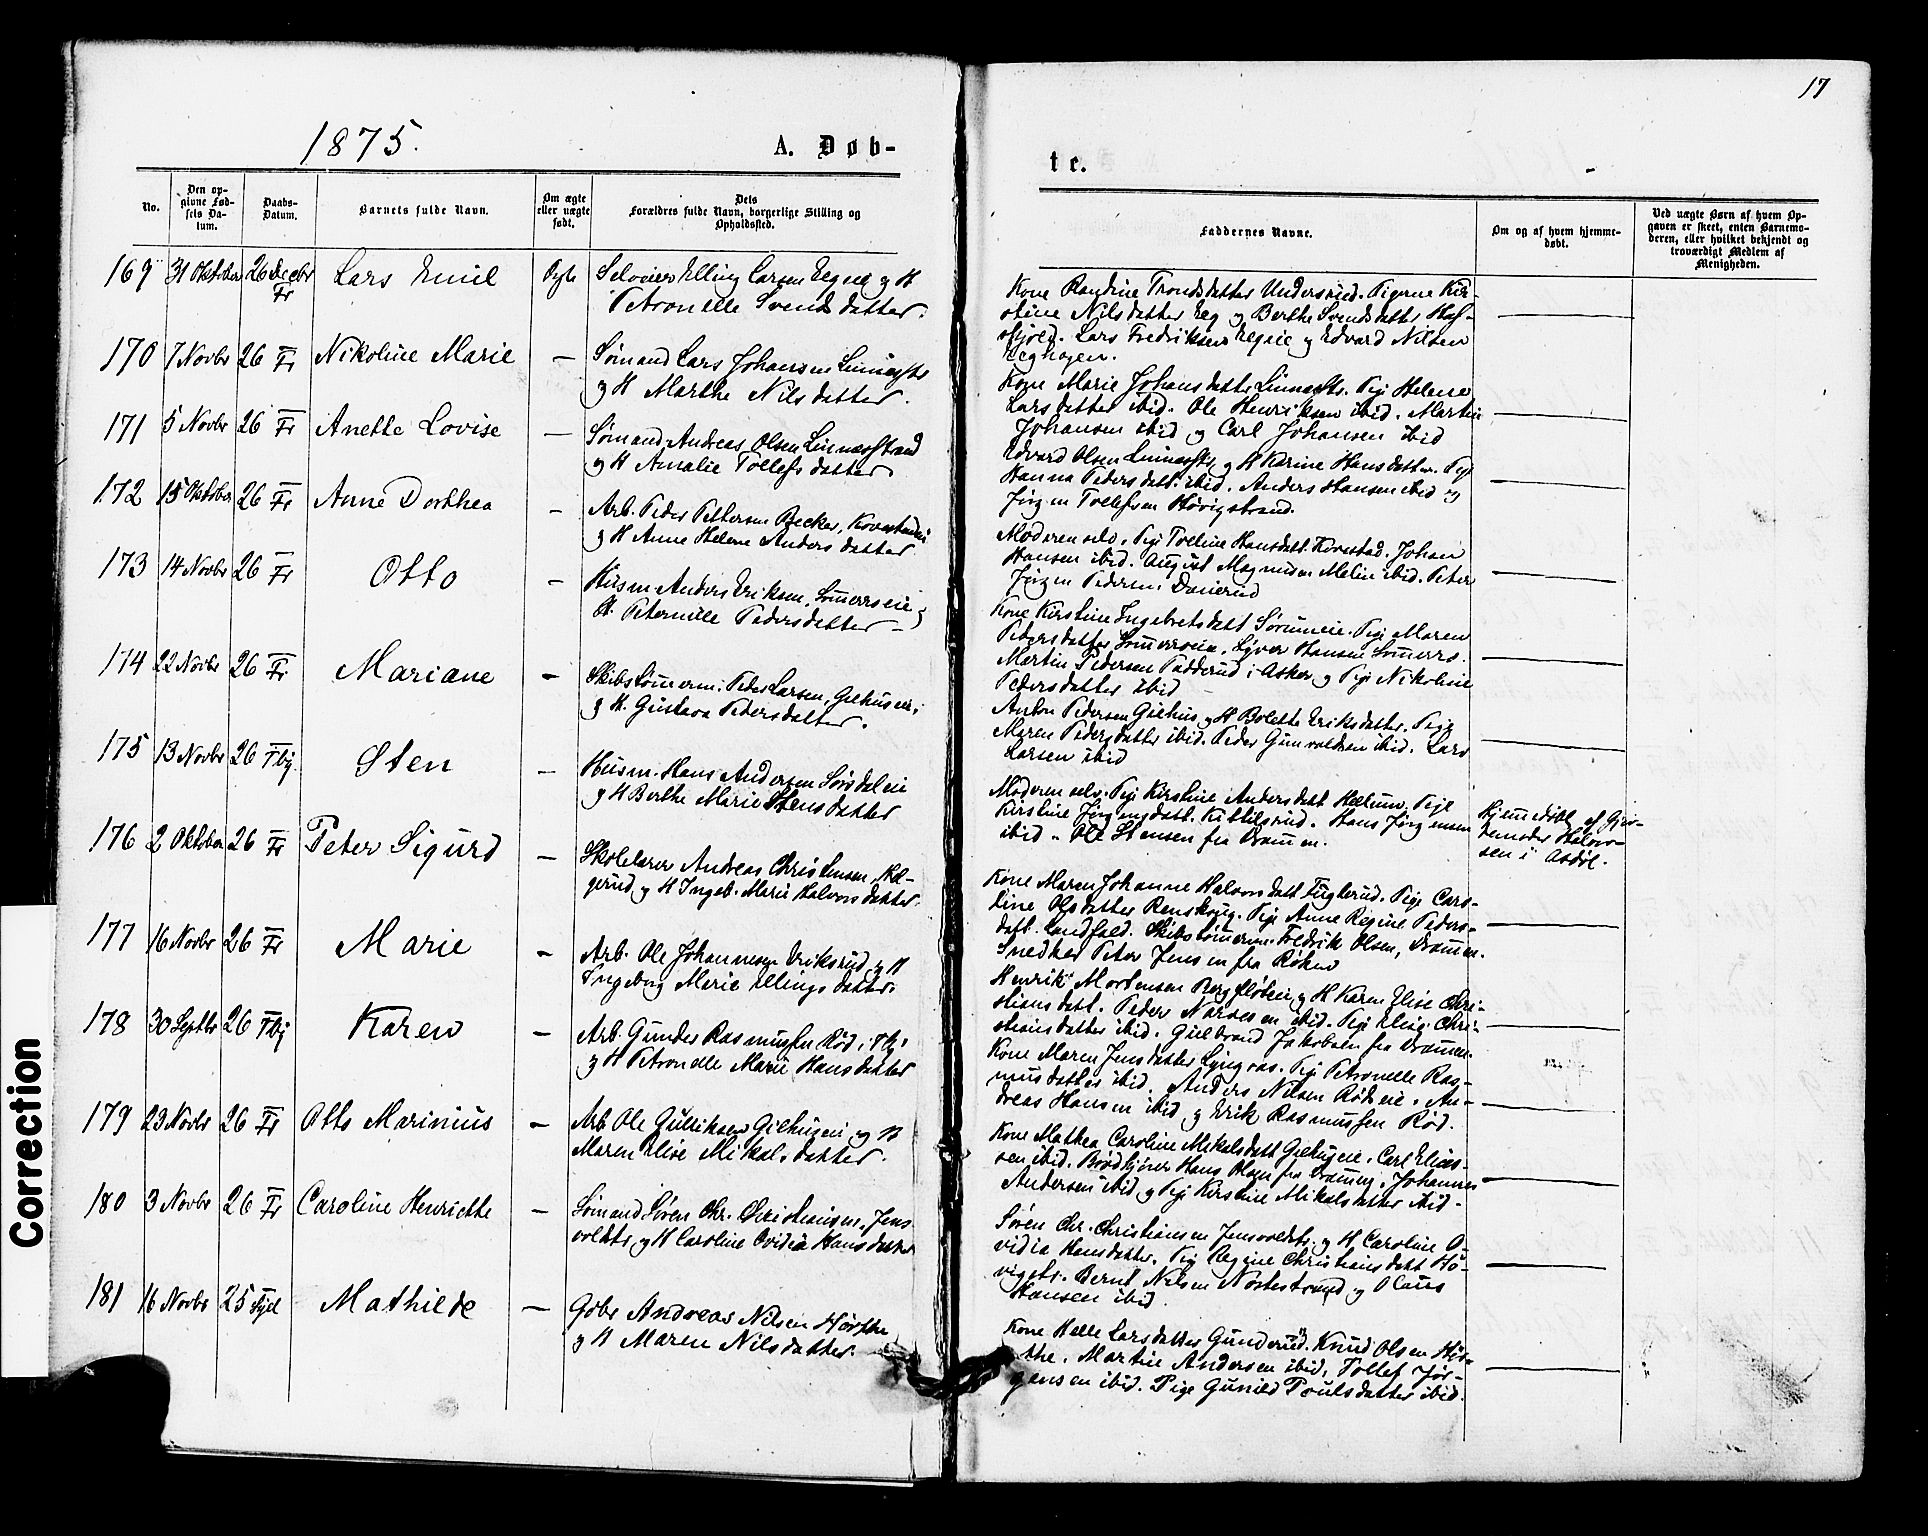 17
1875.
A. Døb-
te.
No.
Den op-
givne Fød-
sels Da-
tum.
Daabs-
Datum.
Barnets fulde Navn.
Om ægte
eller uægte
født.
Dets
Forældres fulde Navn, borgerlige Stilling og
Opholdssted.
Faddernes Navne.
Om og af hvem hjemme-
døbt.
Ved uægte Børn af hvem Op-
gaven er skeet, enten Barnemo-
deren, eller hvilket bekjendt og
troværdigt Medlem af
Menigheden.
169 31 Oktober 26 Decbr Fr Lars Emil Ægte
Selveier Elling Larsen og H
Petronelle Svendsdatter.
Kone Trondsdatter Undersrud. Pigerne Kir-
stine Nilsdatter Eeg og Berthe Svendsdatter
Lars Fredriksen og Edvard Nilsen
Eeghagen.
170 7 Novbr 26 Fr Nikoline Marie —
Sømand Lars Johansen Linnesstr
og H Marthe Nilsdatter.
Kone Marie Johansdatter Linnesstr. Pige Helene
Larsdatter ibid. Ole Henriksen ibid. Martin
Johansen ibid og Carl Johansen ibid
171 5 Novbr 26 Fr Anette Lovise —
Sømand Andreas Olsen Linnesstrand
og H Amalie Tollefsdatter
Edvard Olsen Linnesstr og H Karine Hansdatter. Pige
Hanna Pedersdatt. ibid. Anders Hansen ibid og
Jørgen Tollefsen Høvigstrand.
172 15 Oktober 26 Fr Anne Dorthea —
Arb. Peder Pettersen Becker,
og H Anne Helene Andersdatter
Moderen selv. Pige Hansdatt Kovestad. Johan
Hansen ibid. August Magnusen Melin ibid. Peter
Jørgen Pedersen
173 14 Novbr 26 Fr Otto —
Husm. Anders Eriksen, og
H. Peternille Pedersdatter —
Kone Kirstine Ingebretsdatt Sørumeie. Pige Maren
Pedersdatter Hansen
Martin Pedersen i Asker og Pige Nikoline
Pedersdatter ibid
174 22 Novbr 26 Fr. Mariane —
Skibstømerm. Peder Larsen,
og H. Gustava Pedersdatter.
Anton Pedersen Gilhus og H Bolette Eriksdatter. Pige
Maren Pedersdatter ibid. Peder Gunvaldsen ibid. Lars
Larsen ibid
175 13 Novbr 26 Tbj. Sten —
Husm. Hans Andersen Sørsdaleie
og H Berthe Marie Stensdatter
Moderen selv. Pige Kirstine Andersdatt Hellum. Pige
Kirstine Jørgensdatt. Kittilsrud. Hans Jørgensen
ibid. Ole Stensen fra Dramen.
176 2 Oktober 26 Fr Peter Sigurd —
Skolelærer Andreas Christensen,
og H Ingeb. Marie Halvorsdatter.
Kone Maren Johanne Halvorsdatt Fuglerud. Pige Caro-
line Olsdatter Renskoug. Pige Anne Regine Peders-
datt. Landfald. Skibstømerm. Fredrik Olsen, Dramen.
Snedker Peter Jensen fra Røken
Hjemedøbt af
Halvor-
sen i Asdøl.
177 16 Novbr 26 Fr Marie —
Arb. Ole Johannesen Eriksrud og H
Ingeborg Marie Ellingsdatter.
Henrik Mortensen og H Karen Elise Chri-
stiansdatt. Peder ibid. Pige Elise Chri-
stiansdatter ibid. Gulbrand Jakobsen fra Dramen.
178 30 Septbr 26 Tbj Karen —
Arb. Gunder Rasmussen Rød i Tbj.
og H Petronelle Marie Hansdatter
Kone Maren Jensdatter Lyngaas. Pige Petronelle Ras-
musdatter ibid. Anders Nilsen Rødseie. An-
dreas Hansen ibid og Erik Rasmussen Rød.
179 23 Novbr 26 Fr Otto Marinius —
Arb Ole Gulriksen Gilhuseie og H
Maren Elise Mikalsdatter.
Kone Mathea Caroline Mikalsdatt Gilhuseie. Carl Elias-
sen ibid. Hans Olsen fra Johannes
Andersen ibid og Pige Kirstine Mikalsdatter ibid.
180 3 Novbr 26 Fr Caroline Henriette —
Sømand Søren Chr. Christiansen, Jens-
voldstr. og H Caroline Ovidia Hansdatter
Søren Chr. Christiansen Jensvoldstr. og H. Caroline O-
vidia Hansdatter. Pige Regine Christiansdatt Hø-
vigstr. Bernt Nilsen Nordstrand og Olaus
Hansen ibid.
181 16 Novbr 25 Sjd Mathilde —
Gbr Andreas Nilsen Hørthe
og H Maren Nilsdatter.
Kone Helle Larsdatter Gunderud. Knud Olsen Hør-
the. Martin Andersen ibid, Tollef Jør-
gensen ibid. Pige Gunild Poulsdatter ibid.
Correction